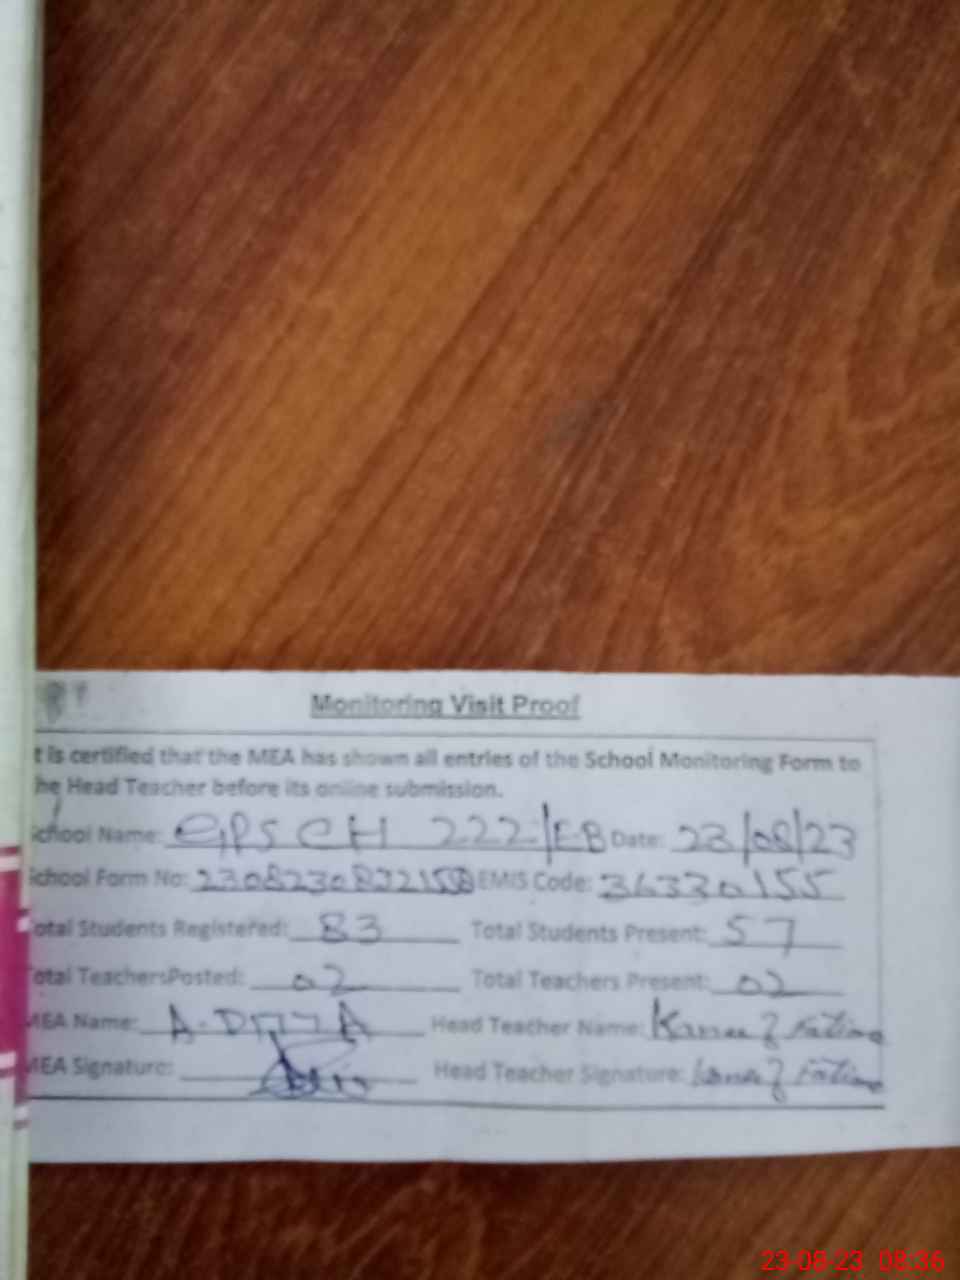 Monitoring Visit Proof
t is certified that the MEA has shown all entries of the School Monitoring Form to
he Head Teacher before its online submission.
School Name: GPS CH 222/EB Date: 23/08/23
School Form No: EMIS Code: 36330155
otal Students Registered: 83 Total Students Present: 57
otal TeachersPosted: 02 Total Teachers Present: 02
MEA Name: Head Teacher Name: Kaneez Fatima
MEA Signature: Head Teacher Signature: Kaneez Fatima
23-08-23 08:36